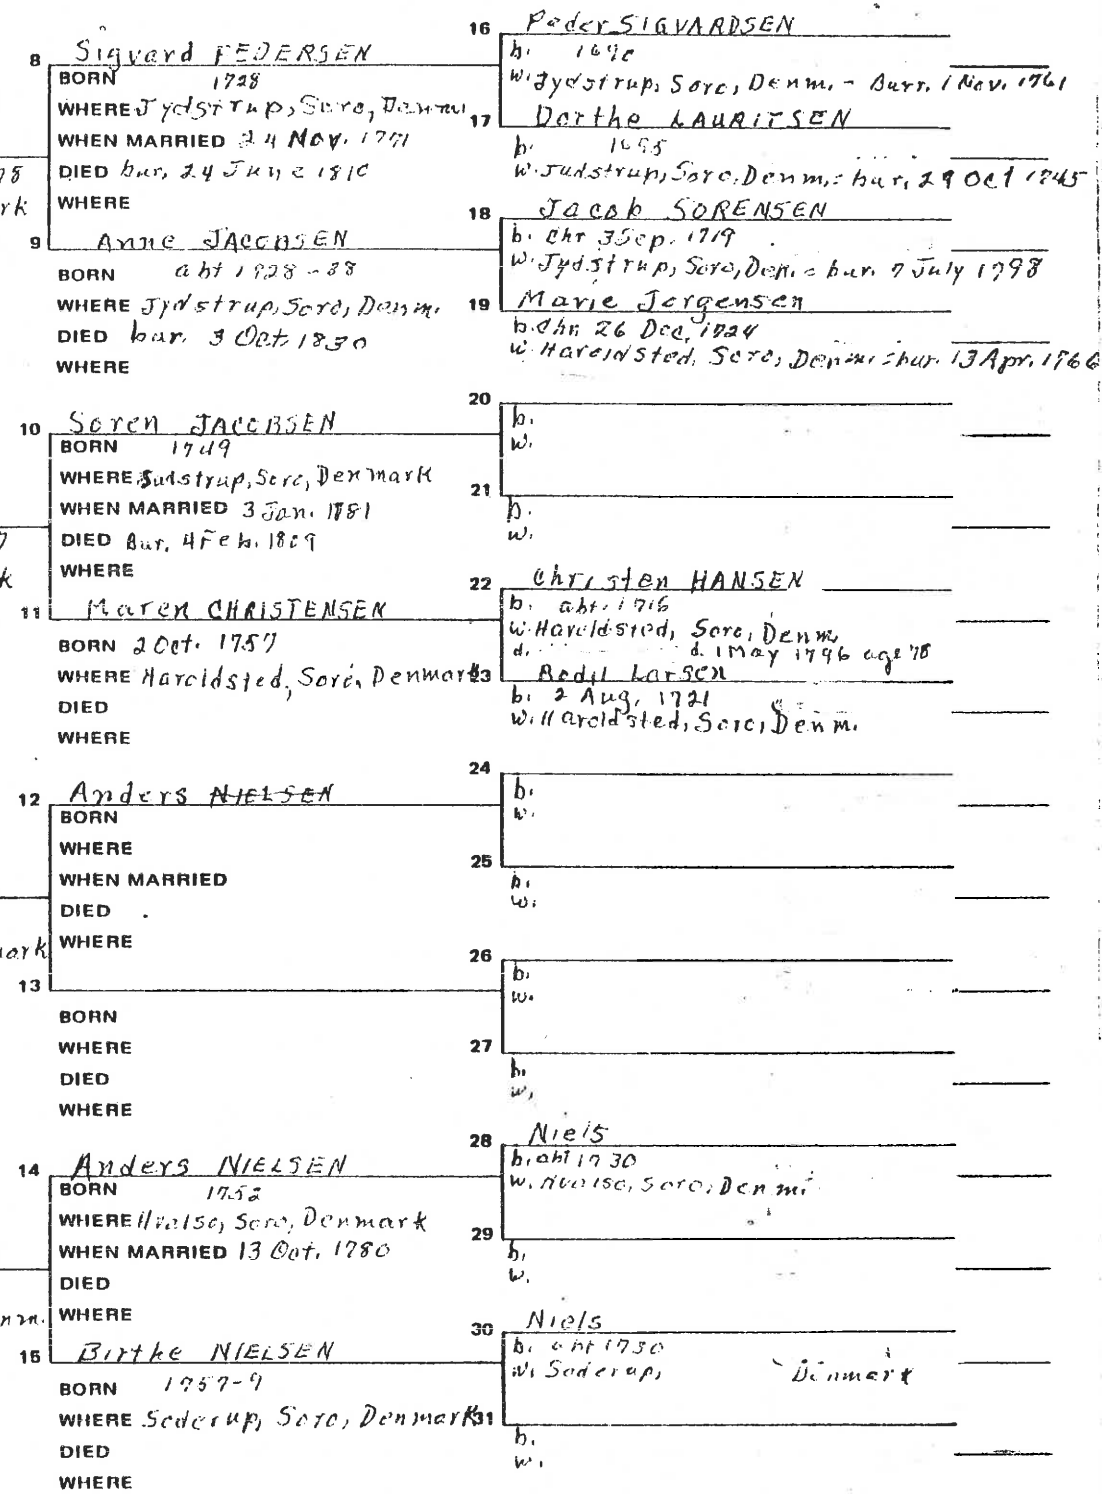 8 Sigvard PEDERSEN
BORN 1728
WHERE Jydstrup, Soro, Denm.
WHEN MARRIED 24 Nov. 1771
DIED bur. 24 June 1810
WHERE
9 Anne JACOBSEN
BORN abt 1728-38
WHERE Jydstrup, Soro, Denm.
DIED bur. 3 Oct. 1830
WHERE
10 Soren JACOBSEN
BORN 1749
WHERE Judstrup, Soro, Denmark
WHEN MARRIED 3 Jan. 1781
DIED Bur. 4 Feb. 1809
WHERE
11 Maren CHRISTENSEN
BORN 2 Oct. 1757
WHERE Haroldsted, Soro, Denmark
DIED
WHERE
12 Anders NIELSEN
BORN
WHERE
WHEN MARRIED
DIED
WHERE
13
BORN
WHERE
DIED
WHERE
14 Anders NIELSEN
BORN 1752
WHERE Hvalso, Soro, Denmark
WHEN MARRIED 13 Oct. 1780
DIED
WHERE
15 Birthe NIELSEN
BORN 1757-9
WHERE Soderup, Soro, Denmark
DIED
WHERE
16 Peder SIGVARDSEN
b. 1690
w. Jydstrup, Soro, Denm. - Burr. 1 Nov. 1761
17 Dorthe LAURITSEN
b. 1695
w. Judstrup, Soro, Denm. : bur. 29 Oct 1745
18 Jacob SORENSEN
b. Chr 3 Sep. 1719
w. Jydstrup, Soro, Den. = bur. 7 July 1798
19 Marie Jorgensen
b. Chr. 26 Dec. 1724
w. Haroldsted, Soro, Denm. : bur. 13 Apr. 1766
20
b.
w.
21
b.
w.
22 Christen HANSEN
b. abt. 1716
w. Haroldsted, Soro, Denm.
d. d. 1 May 1796 age 78
23 Bodil Larsen
b. 2 Aug. 1721
w. Haroldsted, Soro, Denm.
24
b.
w.
25
b.
w.
26
b.
w.
27
b.
w.
28 Niels
b. abt 1730
w. Hvalso, Soro, Denm.
29
b.
w.
30 Niels
b. abt 1730
w. Soderup, Denmark
31
b.
w.
78
rk
7
k
ark
nm.